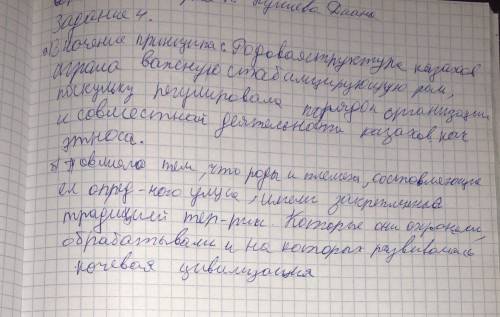 Лучиева Диана
Задание 4.
а) Значение принципа: Родовая структура казахов
играла важную стабилизирующую роль,
поскулку регулировала порядок организации
и совместной деятельности казахов как
этноса.
б) Повлияло тем, что роды и племена, составляющие
ел опред-ного улуса, имели закрепленные
традицией тер-рии. Которые они охраняли,
обрабатывали и на которых развивалась
кочевая цивилизация